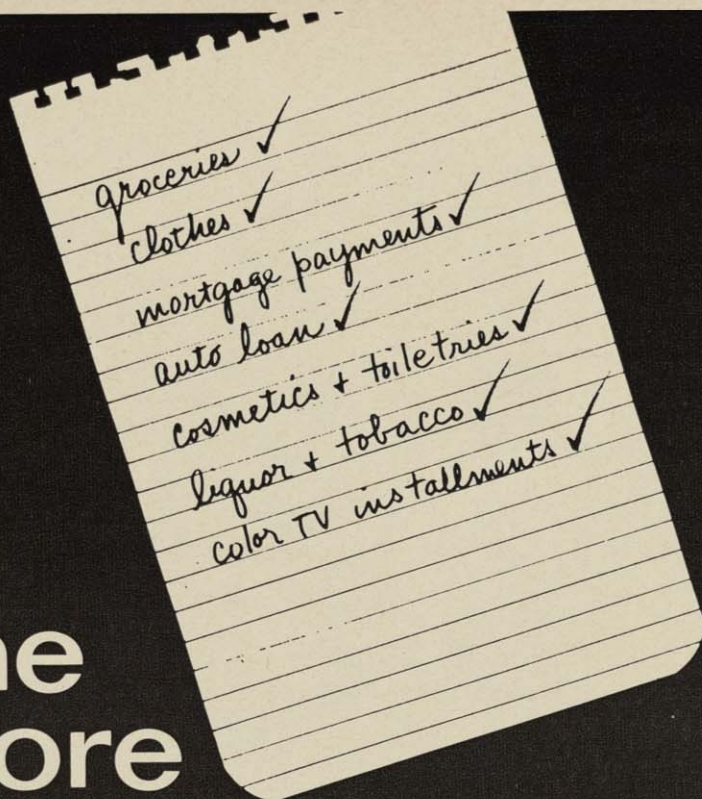 groceries ✓
clothes ✓
mortgage payments ✓
auto loan ✓
cosmetics + toiletries ✓
liquor + tobacco ✓
color TV installments ✓